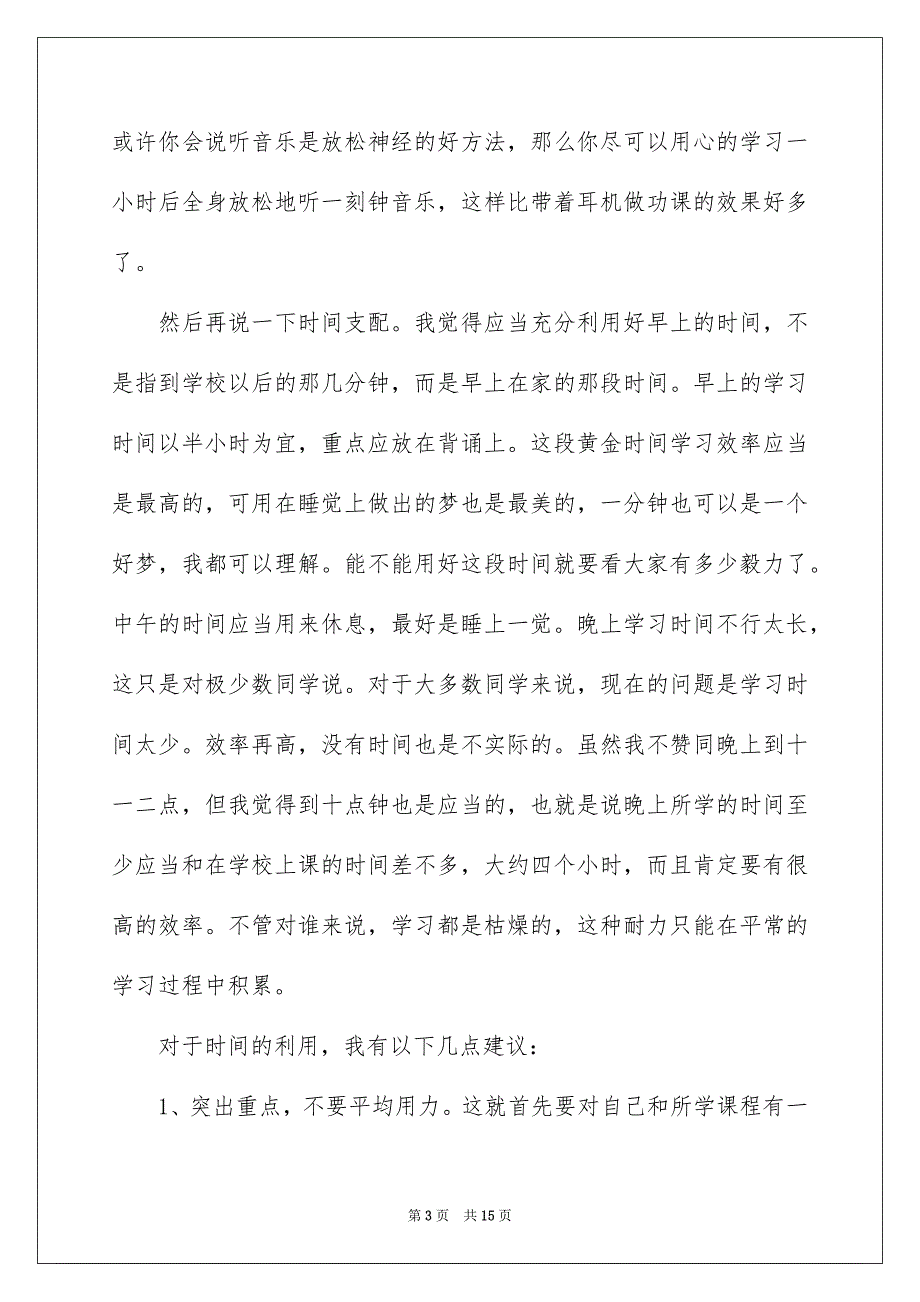 或许你会说听音乐是放松神经的好方法，那么你尽可以用心的学习一
小时后全身放松地听一刻钟音乐，这样比带着耳机做功课的效果好多
了。
然后再说一下时间支配。我觉得应当充分利用好早上的时间，不
是指到学校以后的那几分钟，而是早上在家的那段时间。早上的学习
时间以半小时为宜，重点应放在背诵上。这段黄金时间学习效率应当
是最高的，可用在睡觉上做出的梦也是最美的，一分钟也可以是一个
好梦，我都可以理解。能不能用好这段时间就要看大家有多少毅力了。
中午的时间应当用来休息，最好是睡上一觉。晚上学习时间不行太长，
这只是对极少数同学说。对于大多数同学来说，现在的问题是学习时
间太少。效率再高，没有时间也是不实际的。虽然我不赞同晚上到十
一二点，但我觉得到十点钟也是应当的，也就是说晚上所学的时间至
少应当和在学校上课的时间差不多，大约四个小时，而且肯定要有很
高的效率。不管对谁来说，学习都是枯燥的，这种耐力只能在平常的
学习过程中积累。
对于时间的利用，我有以下几点建议：
1、突出重点，不要平均用力。这就首先要对自己和所学课程有一
第 3 页 共 15 页